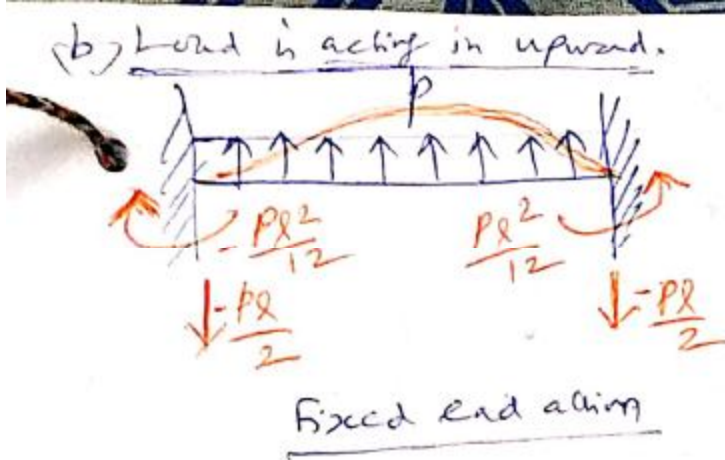 (b) Load is acting in upward.
P
- Pl²/12
Pl²/12
- Pl/2
- Pl/2
Fixed end action